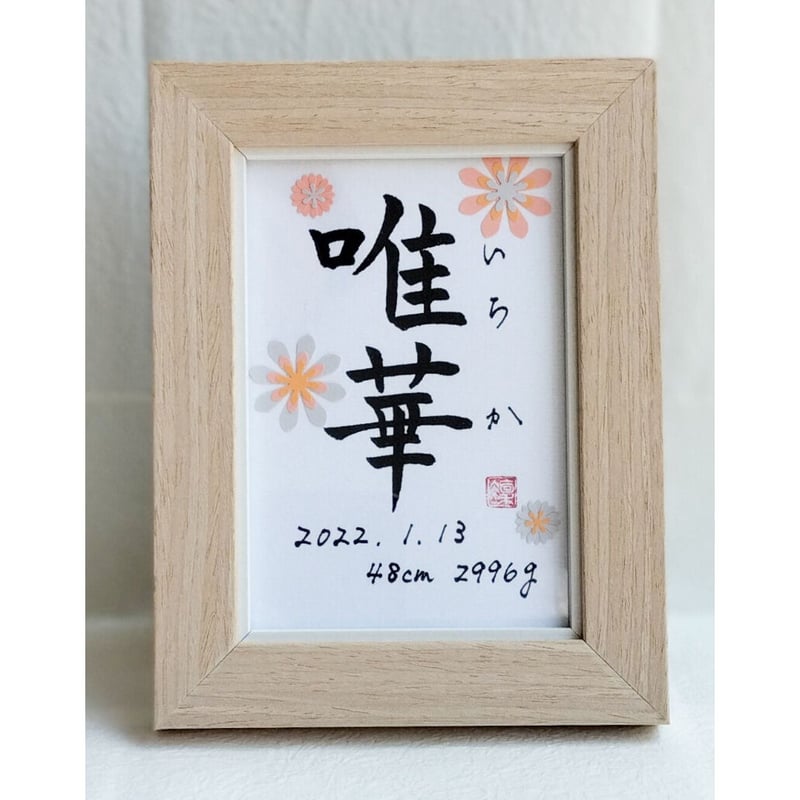 唯華
いちか
2022.1.13
48cm 2996g